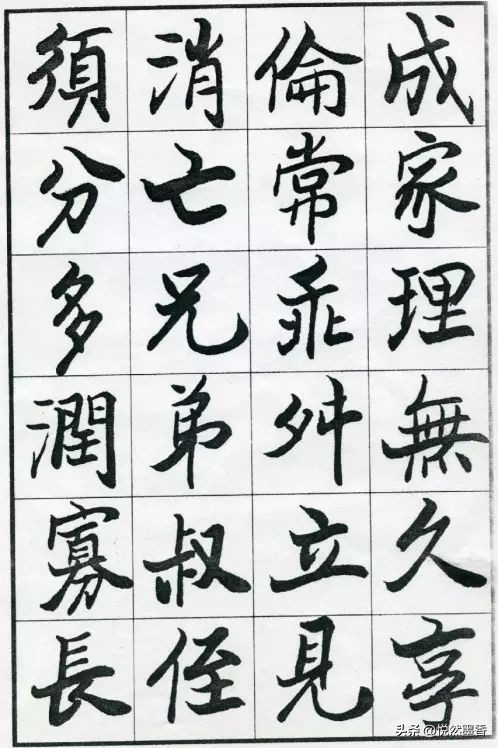 成家理無久享
倫常乖舛立見
消亡兄弟叔侄
須分多潤寡長
头条 @悦然墨香